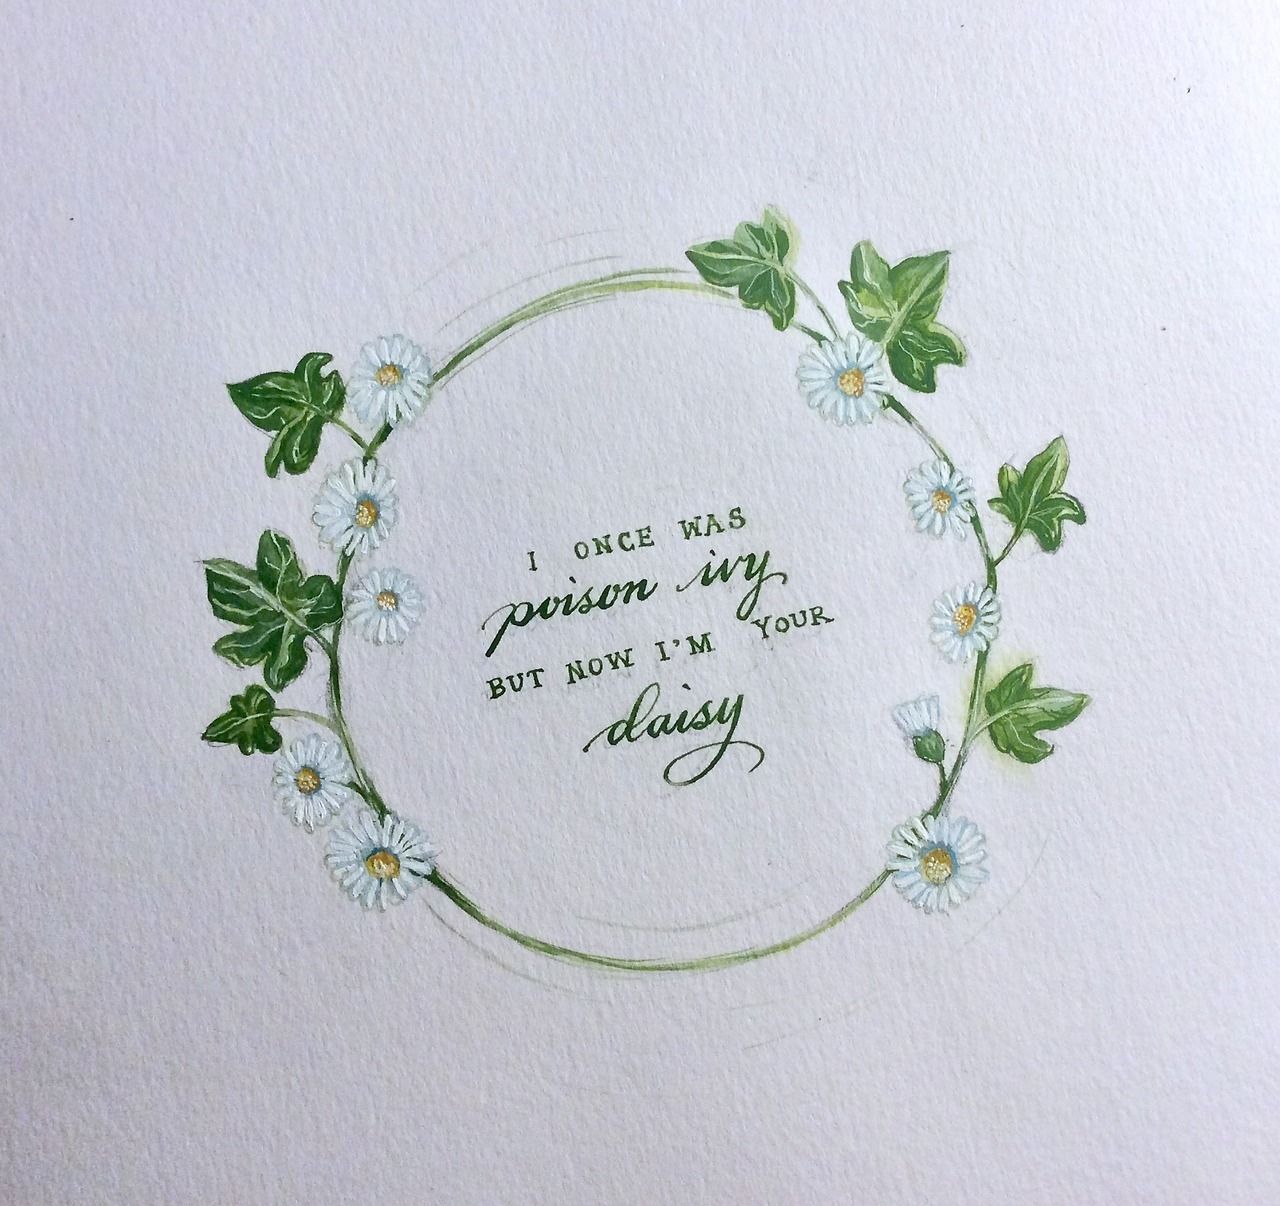 I ONCE WAS
poison ivy
BUT NOW I'M YOUR
daisy